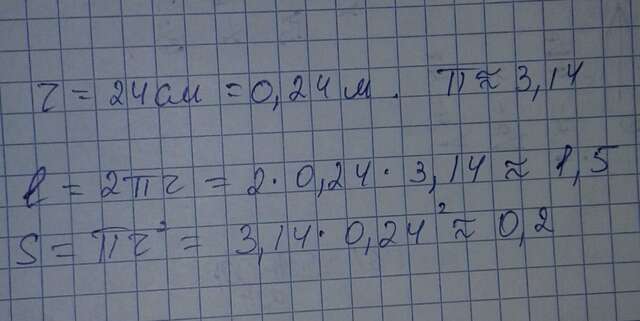 r = 24 см = 0,24 м. π ≈ 3,14
l = 2πr = 2 · 0,24 · 3,14 ≈ 1,5
S = πr² = 3,14 · 0,24² ≈ 0,2